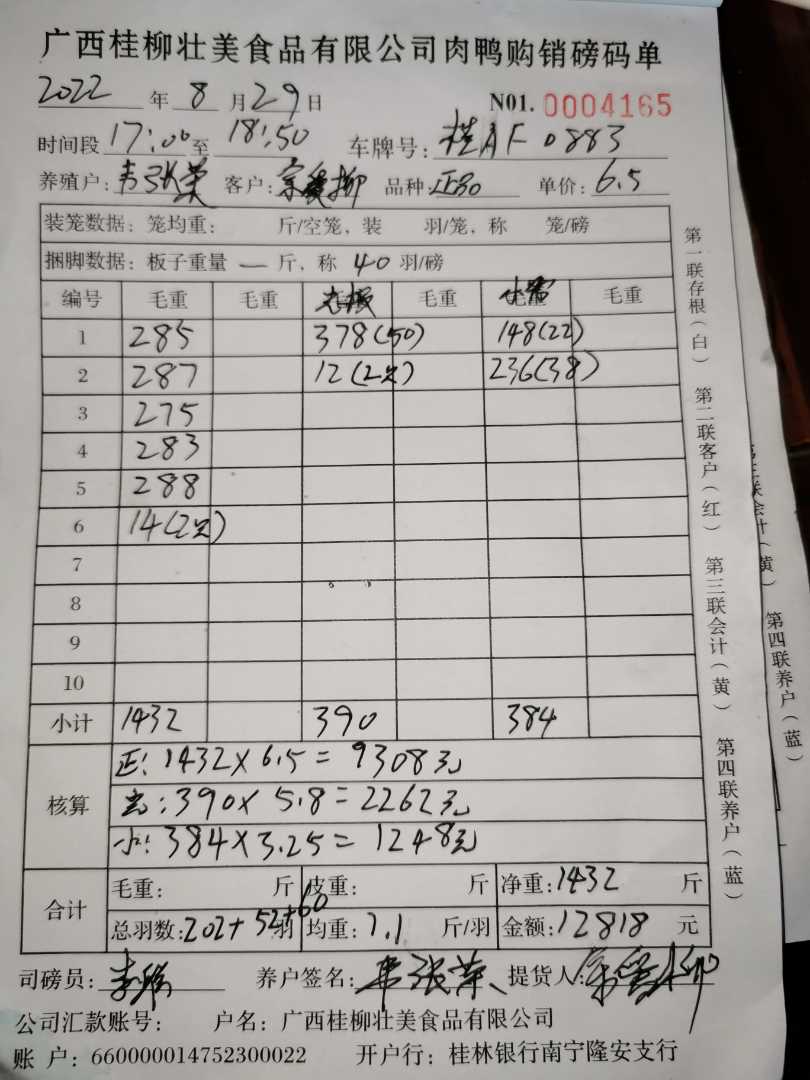 广西桂柳壮美食品有限公司肉鸭购销磅码单
2022 年 8 月 29 日 N01. 0004165
时间段 17:00 至 18:50 车牌号: 桂AF0883
养殖户: 韦张荣 客户: 品种: 正品 单价: 6.5
装笼数据: 笼均重: 斤/空笼, 装 羽/笼, 称 笼/磅
捆脚数据: 板子重量 — 斤, 称 40 羽/磅
编号 毛重 毛重 毛重 毛重
1 285 378(50) 148(22)
2 287 12(2只) 236(38)
3 275
4 283
5 288
6 14(2只)
7
8
9
10
小计 1432 390 384
核算
正: 1432×6.5=9308元
:390×5.8=2262元
小: 384×3.25=1248元
合计
毛重: 斤 皮重: 斤 净重: 1432 斤
总羽数: 202+52+60 羽 均重: 7.1 斤/羽 金额: 12818 元
司磅员: 养户签名: 韦张荣 提货人:
公司汇款账号: 户名: 广西桂柳壮美食品有限公司
账 户: 660000014752300022 开户行: 桂林银行南宁隆安支行
第一联存根(白) 第二联客户(红) 第三联会计(黄) 第四联养户(蓝)
联会计(黄) 第四联养户(蓝)